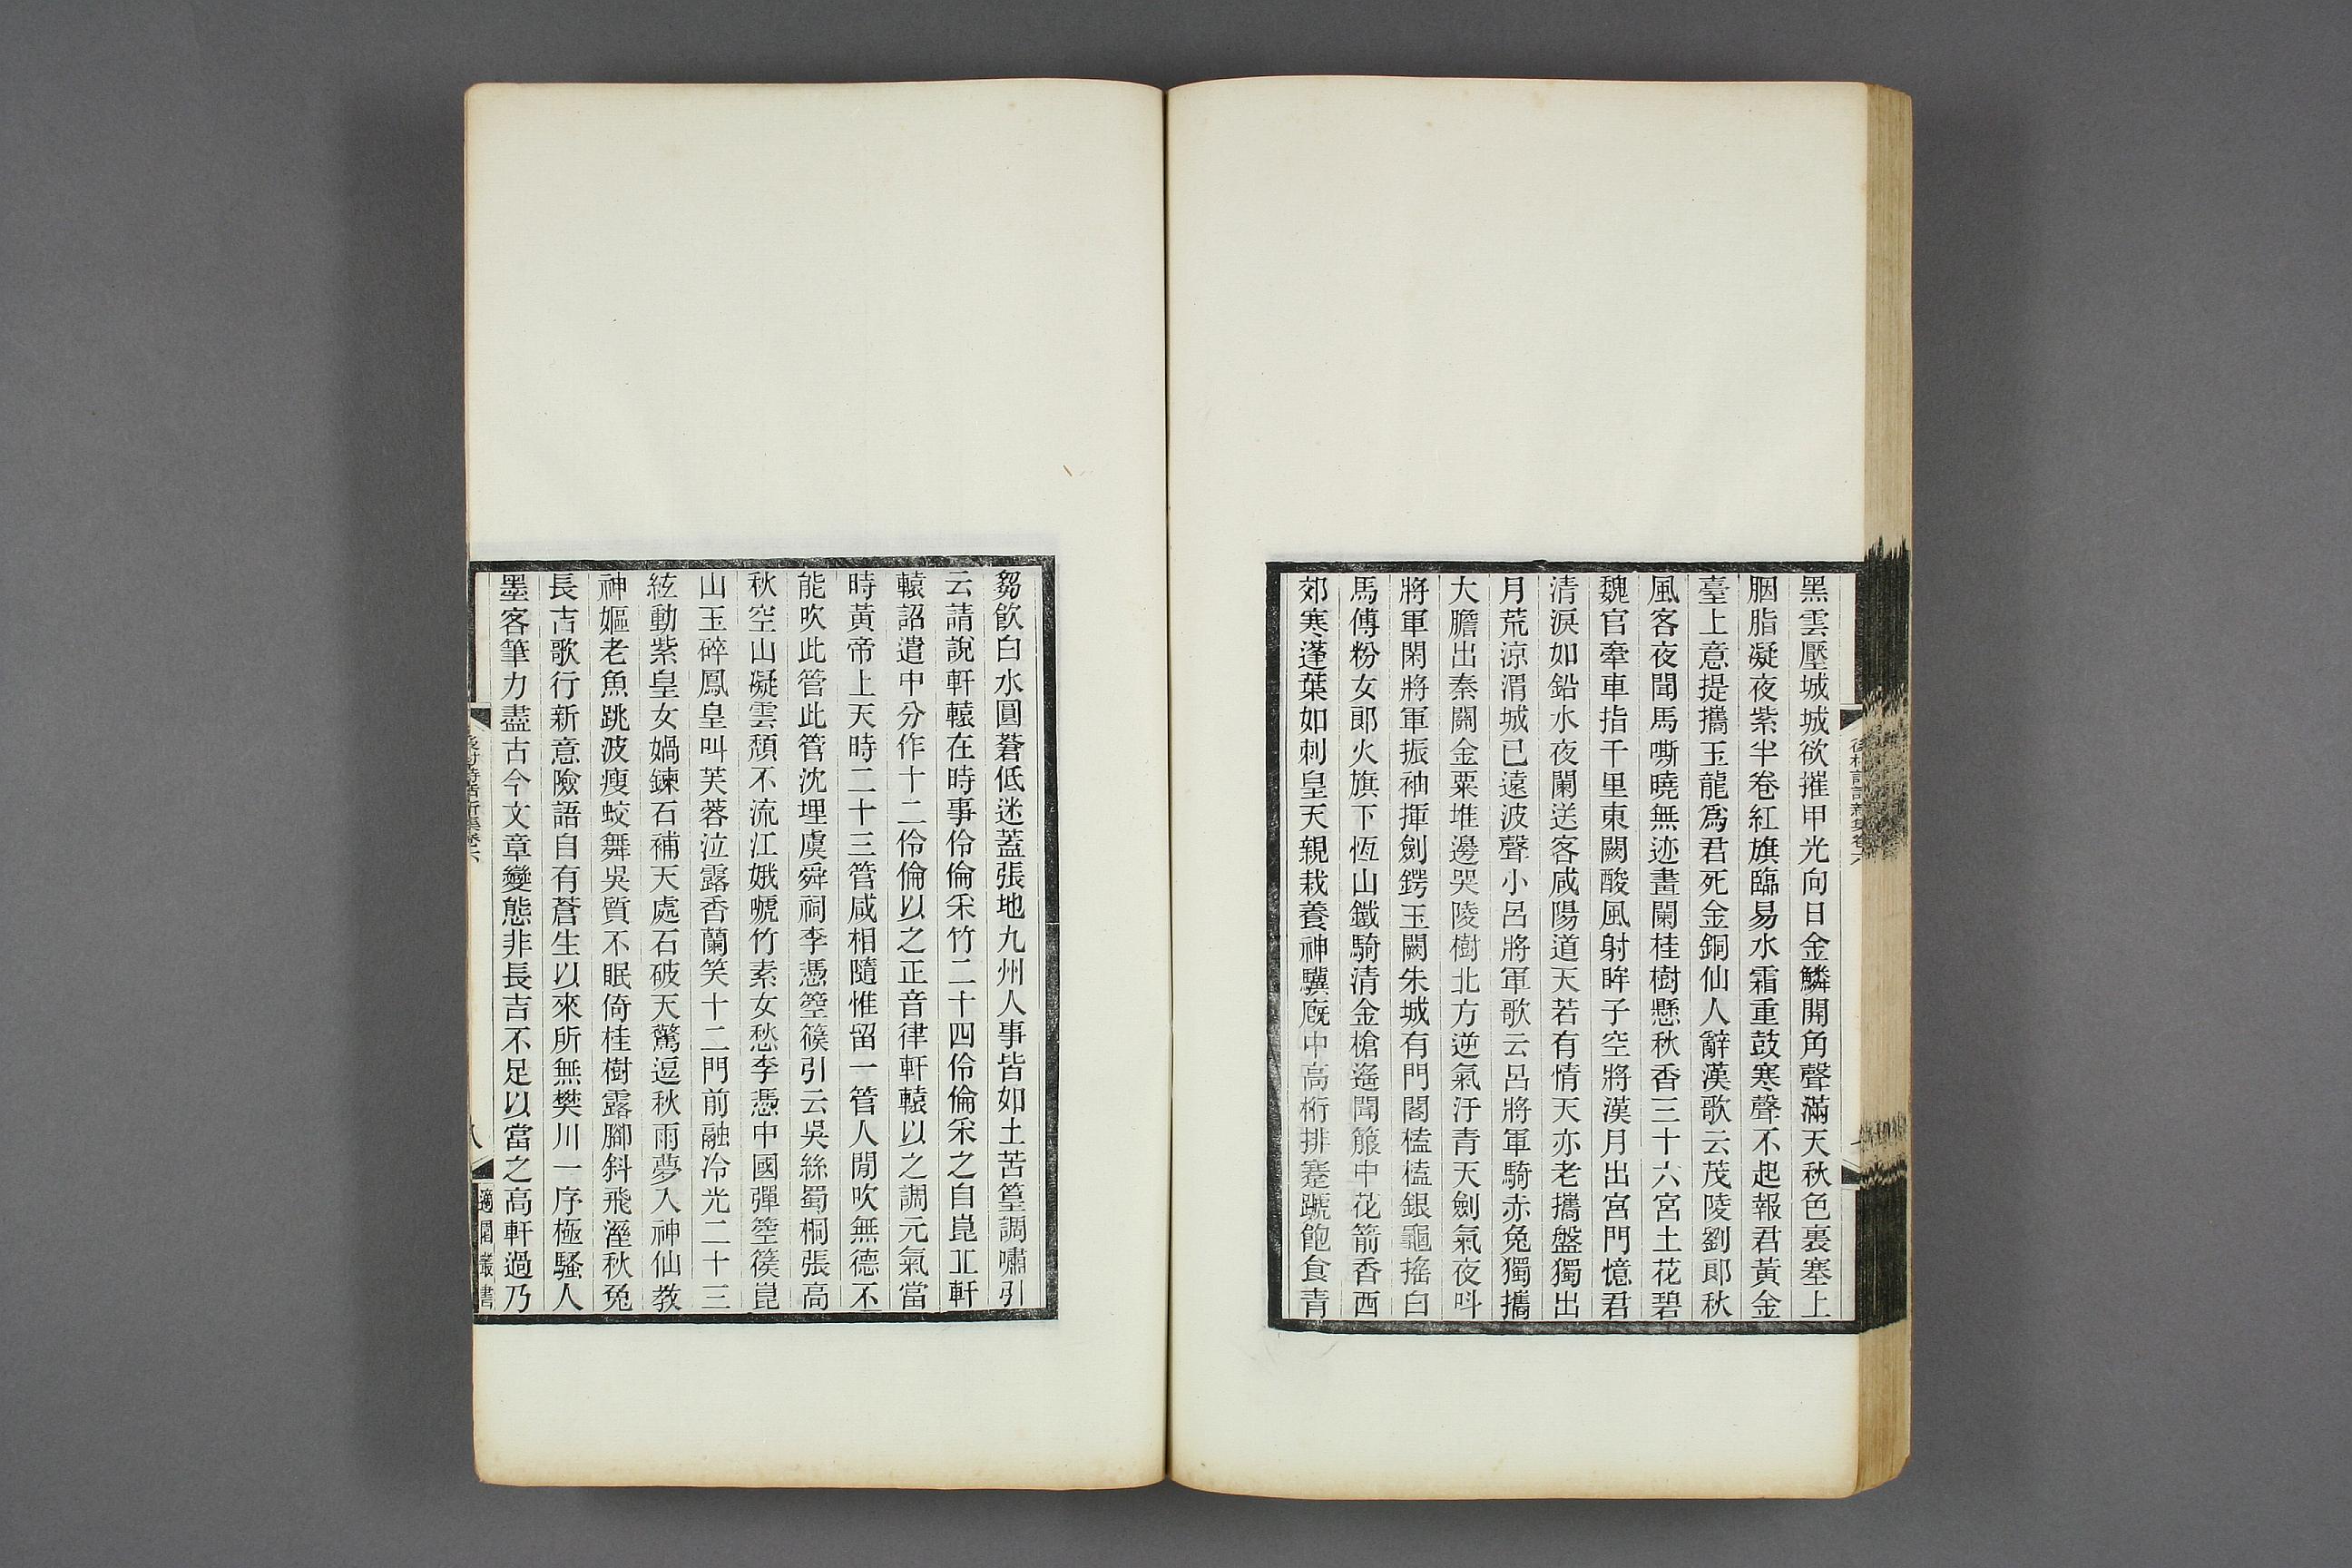 黑雲壓城城欲摧甲光向日金鱗開角聲滿天秋色裏塞上
胭脂凝夜紫半卷紅旗臨易水霜重鼓寒聲不起報君黃金
臺上意提攜玉龍爲君死金銅仙人辭漢歌云茂陵劉郎秋
風客夜聞馬嘶曉無迹畫闌桂樹懸秋香三十六宮土花碧
魏官牽車指千里東闕酸風射眸子空將漢月出宮門憶君
清淚如鉛水夜闌送客咸陽道天若有情天亦老攜盤獨出
月荒涼渭城已遠波聲小呂將軍歌云呂將軍騎赤兔獨攜
大膽出秦關金粟堆邊哭陵樹北方逆氣汙青天劍氣夜叫
將軍閑將軍振袖揮劍鍔玉闕朱城有門閣榼榼銀龜搖白
馬傅粉女郎火旗下恆山鐵騎清金槍遙聞箙中花箭香西
郊寒蓬葉如刺皇天親栽養神驥廐中高桁排蹇蹏飽食青
芻飲白水圓蒼低迷蓋張地九州人事皆如土苦篁調嘯引
云請說軒轅在時事伶倫采竹二十四伶倫采之自崑丘軒
轅詔遣中分作十二伶倫以之正音律軒轅以之調元氣當
時黃帝上天時二十三管咸相隨惟留一管人閒吹無德不
能吹此管此管沈埋虞舜祠李憑箜篌引云吳絲蜀桐張高
秋空山凝雲頹不流江娥嗁竹素女愁李憑中國彈箜篌崑
山玉碎鳳皇叫芙蓉泣露香蘭笑十二門前融冷光二十三
絃動紫皇女媧鍊石補天處石破天驚逗秋雨夢入神仙敎
神嫗老魚跳波瘦蛟舞吳質不眠倚桂樹露腳斜飛溼秋兔
長吉歌行新意險語自有蒼生以來所無樊川一序極騷人
墨客筆力盡古今文章變態非長吉不足以當之高軒過乃
後村詩話新集卷六
八
適園叢書